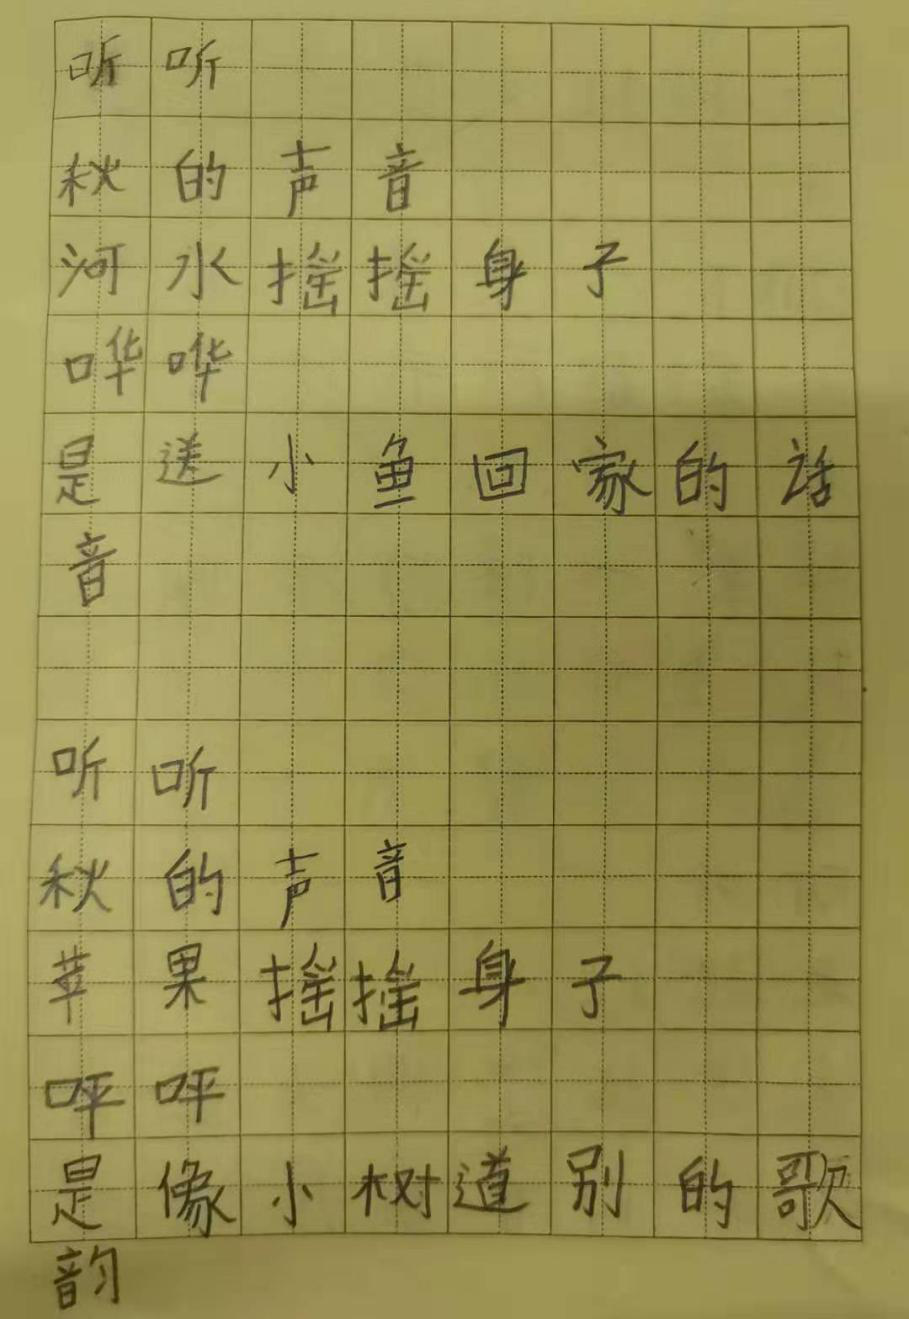 听听
秋的声音
河水摇摇身子
哗哗
是送小鱼回家的话
音
听听
秋的声音
苹果摇摇身子
呯呯
是像小树道别的歌
韵